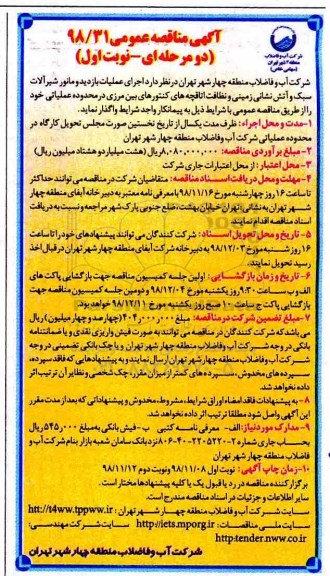 آگهی مناقصه عمومی ۹۸/۳۱
(دو مرحله ای -نوبت اول)
شرکت آب و فاضلاب
منطقه ۴ شهر تهران
(سهامی خاص)
شرکت آب و فاضلاب منطقه چهار شهر تهران در نظر دارد اجرای عملیات بازدید و مانور شیرآلات
سبک و آتش نشانی زمینی و نظافت اتاقچه های کنتورهای بین مرزی در محدوده عملیاتی خود
را از طریق مناقصه عمومی با شرایط ذیل به پیمانکار واجد شرایط واگذار نماید.
۱-مدت و محل اجراء: ظرف مدت یکسال از تاریخ نخستین صورت مجلس تحویل کارگاه در
محدوده عملیاتی شرکت آب و فاضلاب منطقه چهار شهر تهران
۲-مبلغ برآوردی مناقصه: ۸,۰۸۰,۰۰۰,۰۰۰ ریال (هشت میلیارد و هشتاد میلیون ریال)
۳-محل اعتبار: از محل اعتبارات جاری شرکت
۴-مهلت و محل دریافت اسناد مناقصه: متقاضیان شرکت در مناقصه می توانند حداکثر
تا ساعت ۱۶ روز چهارشنبه مورخ ۹۸/۱۱/۱۶ با معرفی نامه معتبر به دبیرخانه آبفای منطقه چهار
شهر تهران به نشانی تهران خیابان بهشت، ضلع جنوبی پارک شهر مراجعه و نسبت به دریافت
اسناد مناقصه اقدام نمایند.
۵- تاریخ و محل تحویل اسناد: شرکت کنندگان می توانند پیشنهادهای خود را تا ساعت
۱۶ روز شنبه مورخ ۹۸/۱۲/۰۳ به دبیرخانه شرکت آبفای منطقه چهار شهر تهران در قبال اخذ
رسید تحویل نمایند.
۶- تاریخ و زمان بازگشایی: اولین جلسه کمیسیون مناقصه جهت بازگشایی پاکت های
الف و ب ساعت ۹:۳۰ روز یکشنبه مورخ ۹۸/۱۲/۰۴ و دومین جلسه کمیسیون مناقصه جهت
بازگشایی پاکت ج ساعت صبح روز یکشنبه مورخ ۹۸/۱۲/۱۱ خواهد بود.
۷-مبلغ تضمین شرکت در مناقصه: مبلغ ۴۰۴,۰۰۰,۰۰۰ (چهارصد و چهار میلیون) ریال
می باشد که شرکت کنندگان در مناقصه می توانند به صورت فیش واریزی نقدی و یا ضمانتنامه
بانکی در وجه شرکت آب و فاضلاب منطقه چهار شهر تهران و یا چک بانکی تضمینی در وجه
شرکت آب و فاضلاب منطقه چهار شهر تهران ارسال نمایند و به پیشنهادهایی که فاقد سپرده،
سپرده های مخدوش، سپرده های کمتر از میزان مقرر، چک شخصی و نظایر آن ترتیب اثر
داده نخواهد شد.
۸- به پیشنهادات فاقد امضاء، اوراق شرایط، مشروط، مخدوش و پیشنهاداتی که بعد از مدت مقرر
این آگهی واصل شود مطلقا ترتیب اثر داده نخواهد شد.
۹-مدارک مورد نیاز: الف- معرفی نامه کتبی ب- فیش بانکی به مبلغ ۵۴۵,۰۰۰ ریال
بحساب جاری شماره نزد بانک سامان شعبه بازار بنام شرکت آب و
فاضلاب منطقه چهار شهر تهران
۱۰-زمان چاپ آگهی: نوبت اول ۹۸/۱۱/۰۸ و نوبت دوم ۹۸/۱۱/۱۲
برگزار کننده مناقصه در رد یا قبول یک یا کلیه پیشنهادها مختار است.
سایر اطلاعات و جزئیات در اسناد مناقصه مندرج است.
سایت شرکت آب و فاضلاب منطقه چهار شهر تهران: htt://t4ww.tppww.ir
سایت ملی مناقصات: http://iets.mporg.ir سایت شرکت مهندسی:
http:tender.nww.co.ir
شرکت آب و فاضلاب منطقه چهار شهر تهران